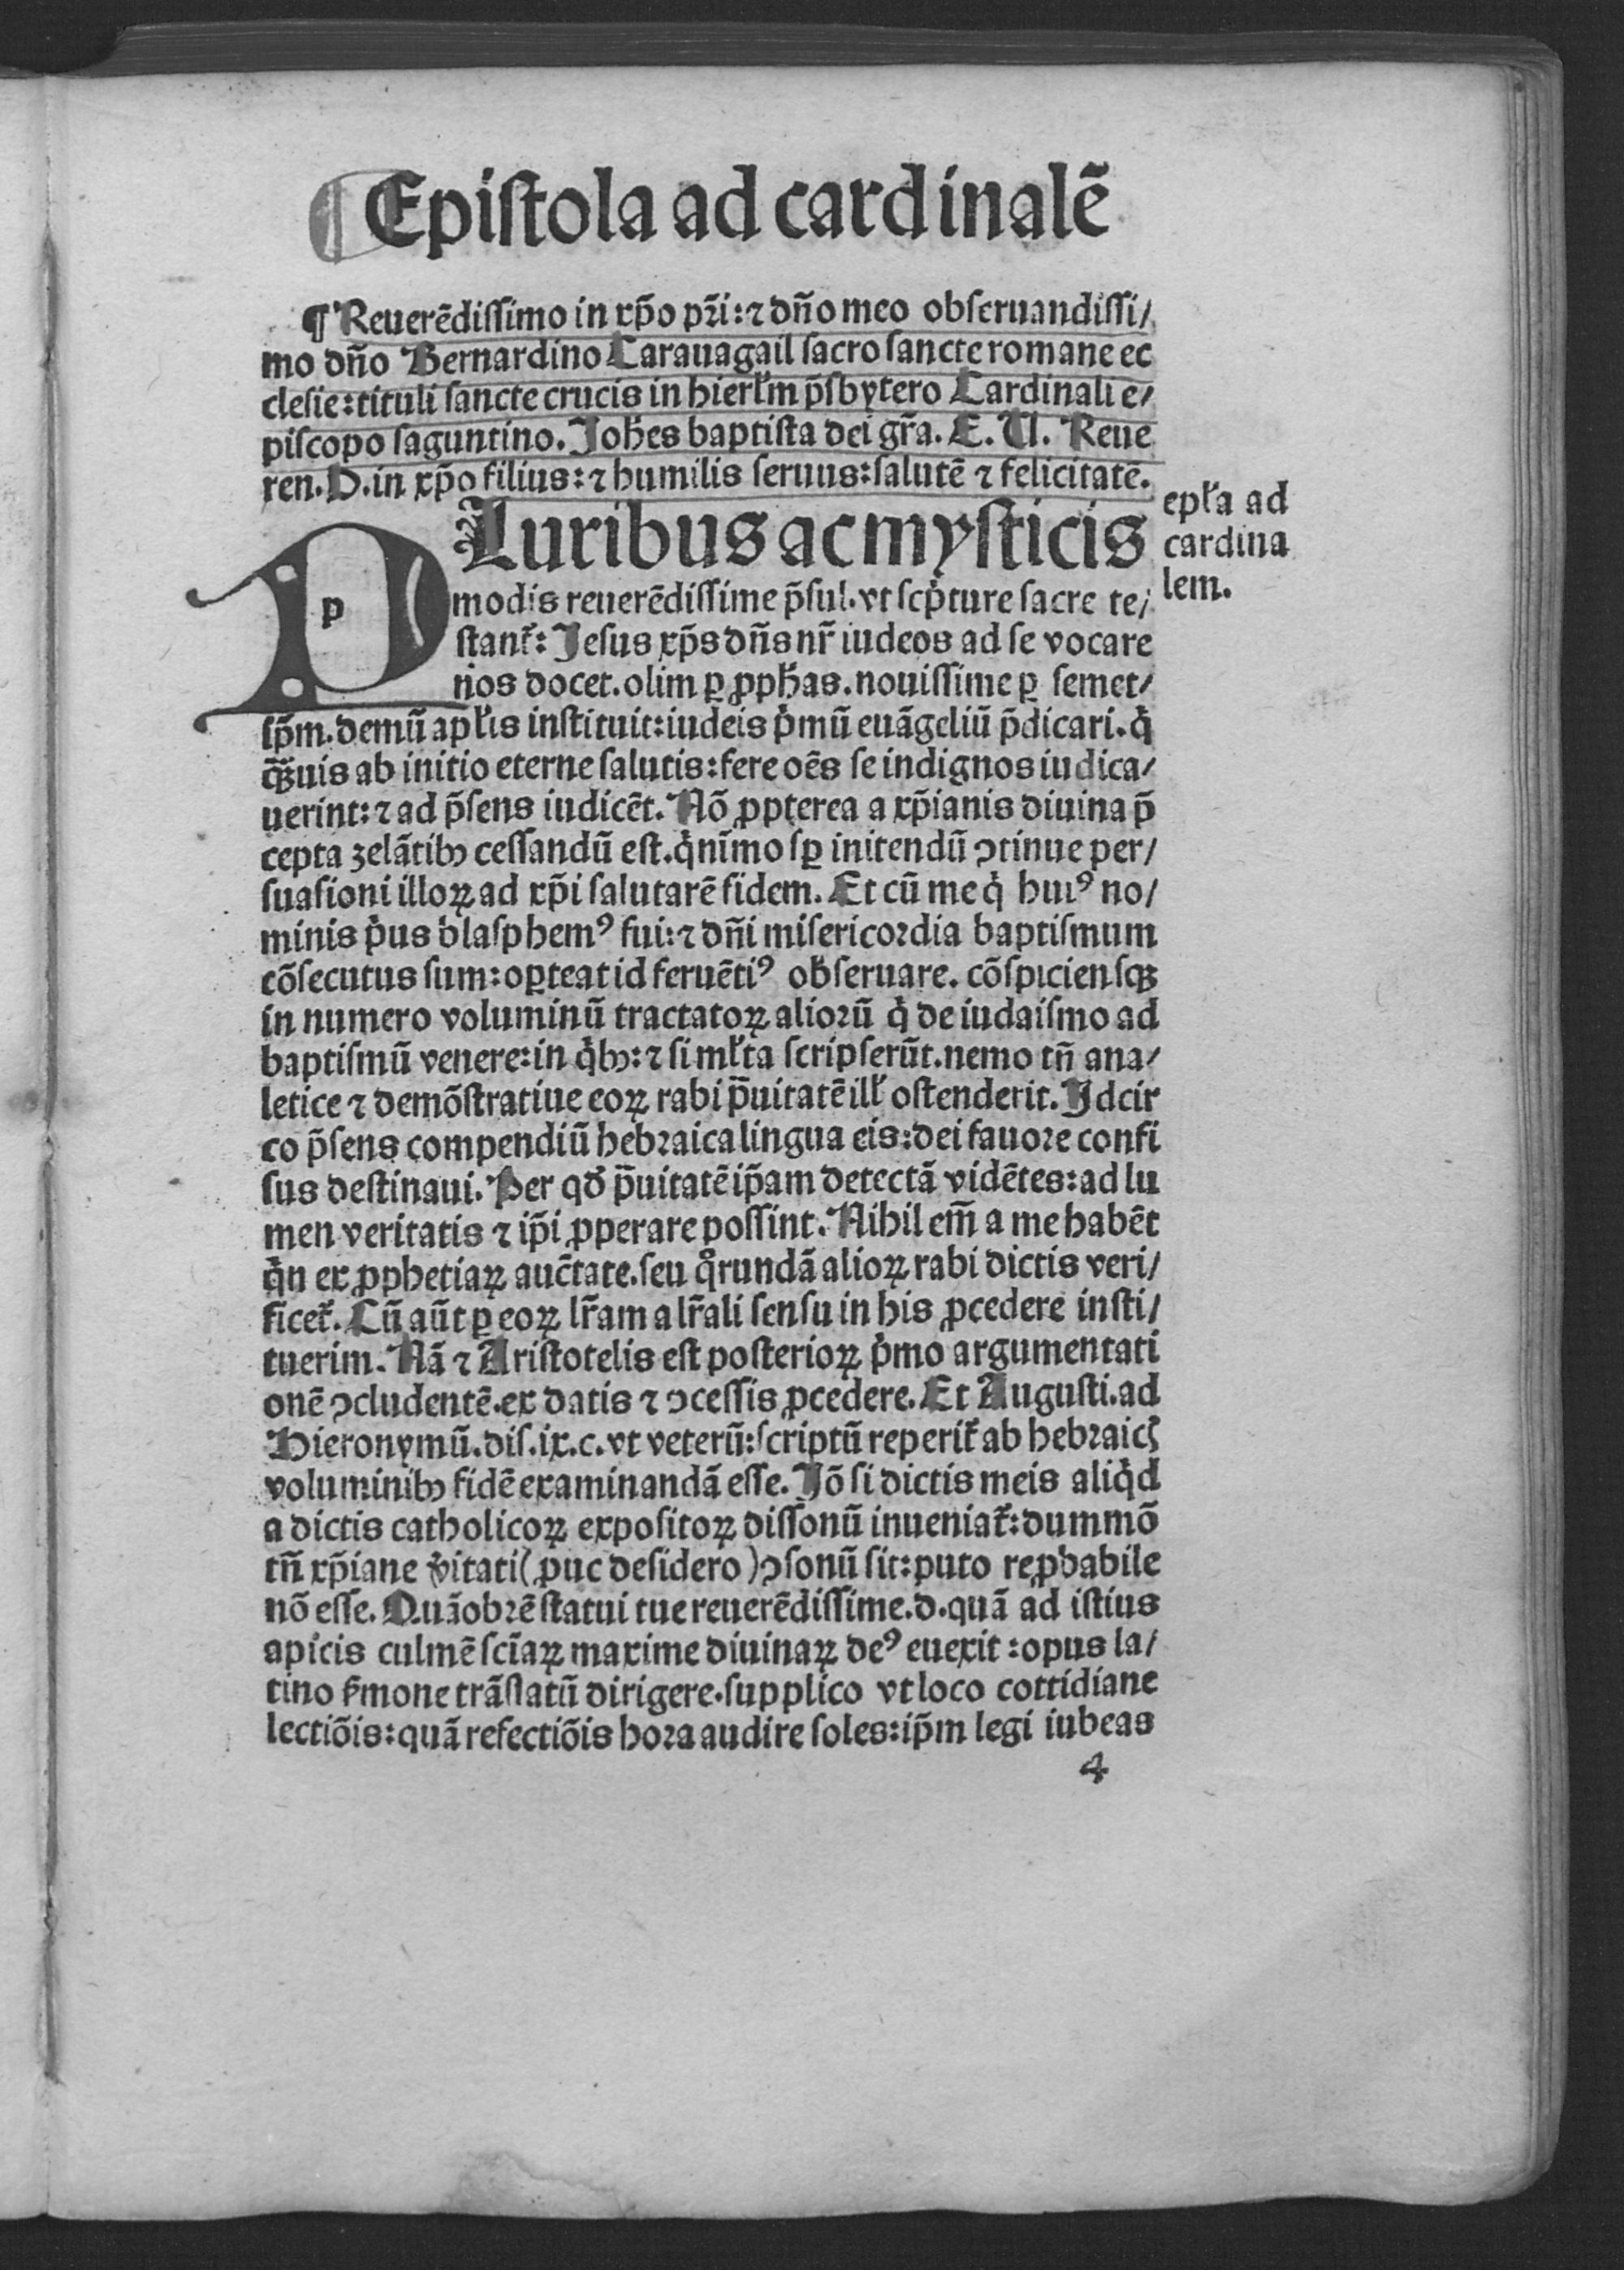 ¶ Epistola ad cardinalē
¶ Reuerēdissimo in xp̄o pr̄i: ⁊ dn̄o meo obseruandissi/
mo dn̄o Bernardino Carauagail sacro sancte romane ec
clesie: tituli sancte crucis in hierłm p̄sbytero Cardinali e/
piscopo saguntino. Joħes baptista dei gr̄a. E. U. Reue
ren. D. in xp̄o filius: ⁊ humilis seruus: salutē ⁊ felicitatē.
epł'a ad
cardina
lem.
PLuribus ac mysticis
modis reuerēdissime p̄sul. vt scp̓ture sacre te/
stant᷑: Jesus xp̄s dn̄s nr̄ iudeos ad se vocare
nos docet. olim ꝑ ꝓpħas. nouissime ꝑ semet/
ip̄m. demū apłis instituit: iudeis p̓mū euāgeliū p̄dicari. q̓
q̄ꝫuis ab initio eterne salutis: fere oēs se indignos iudica/
uerint: ⁊ ad p̄sens iudicēt. Nō ꝓpterea a xp̄ianis diuina p̄
cepta zelātibꝰ cessandū est. q̓nīmo sꝑ initendū ↄtinue per/
suasioni illoꝝ ad xp̄i salutarē fidem. Et cū me q̓ huiꝰ no/
minis p̓us blasphemꝰ fui: ⁊ dn̄i misericordia baptismum
cōsecutus sum: oꝑteat id feruētiꝰ obseruare. cōspiciensqꝫ
in numero voluminū tractatoꝝ aliorū q̓ de iudaismo ad
baptismū venere: in q̓bꝰ: ⁊ si młta scripserūt. nemo tn̄ ana/
letice ⁊ demōstratiue eoꝝ rabi p̄uitatē ill' ostenderit. Jdcir
co p̄sens compendiū hebraica lingua eis: dei fauore confi
sus destinaui. Per qđ p̄uitatē ip̄am detectā vidētes: ad lu
men veritatis ⁊ ip̄i ꝓperare possint. Nihil em̄ a me habēt
q̓n ex ꝓphetiaꝝ auc̄tate. seu q̊rundā alioꝝ rabi dictis veri/
ficet᷑. Cū aūt ꝑ eoꝝ lr̄am a lr̄ali sensu in his ꝓcedere insti/
tuerim. Nā ⁊ Aristotelis est posterioꝝ p̓mo argumentati
onē ↄcludentē. ex datis ⁊ ↄcessis ꝓcedere. Et Augusti. ad
Hieronymū. dis. ix. c. vt veterū: scriptū reperit᷑ ab hebraicꝭ
voluminibꝰ fidē examinandā esse. Jō si dictis meis aliq̓d
a dictis catholicoꝝ expositoꝝ dissonū inueniat᷑: dummō
tn̄ xp̄iane v̓itati (ꝓuc desidero) ↄsonū sit: puto reꝓbabile
nō esse. Quāobrē statui tue reuerēdissime. d. quā ad istius
apicis culmē sciaꝝ maxime diuinaꝝ deꝰ euexit: opus la/
tino ẜmone trāslatū dirigere. supplico vt loco cottidiane
lectiōis: quā refectiōis hora audire soles: ip̄m legi iubeas
4